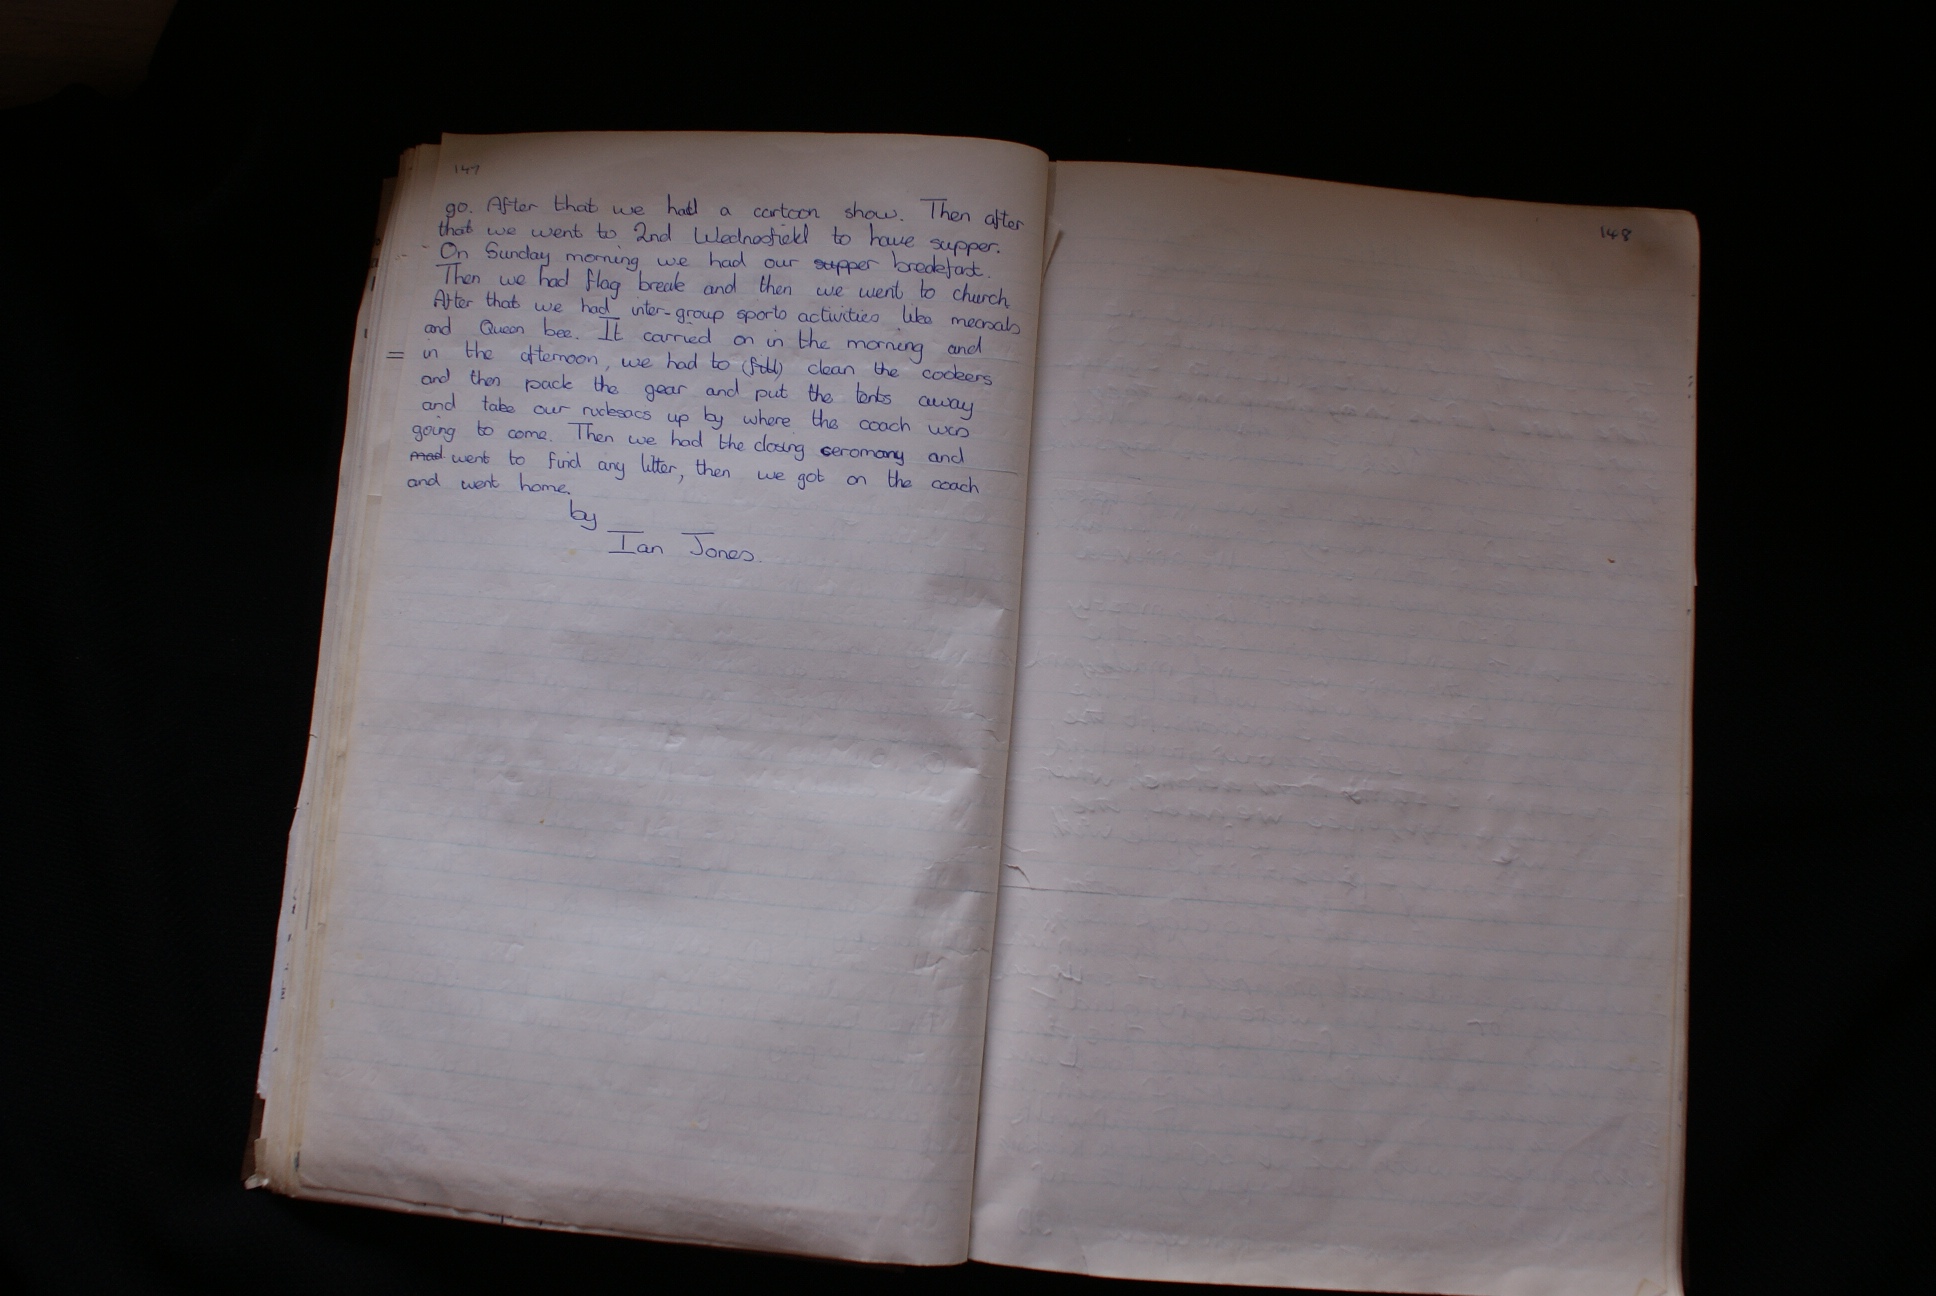 147
go. After that we had a cartoon show. Then after
that we went to 2nd Wednesfield to have supper.
On Sunday morning we had our supper breakfast.
Then we had flag break and then we went to church
After that we had inter-group sports activities like
and Queen bee. It carried on in the morning and
in the afternoon, we had to clean the cookers
and then pack the gear and put the tents away
and take our rucksacs up by where the coach was
going to come. Then we had the closing ceromony and
went to find any litter, then we got on the coach
and went home.
by
Ian Jones.
148